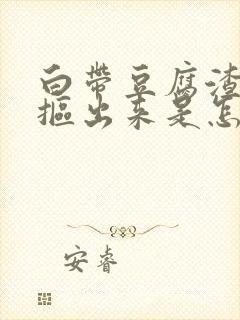 白带豆腐渣
抠出来是怎
安睿